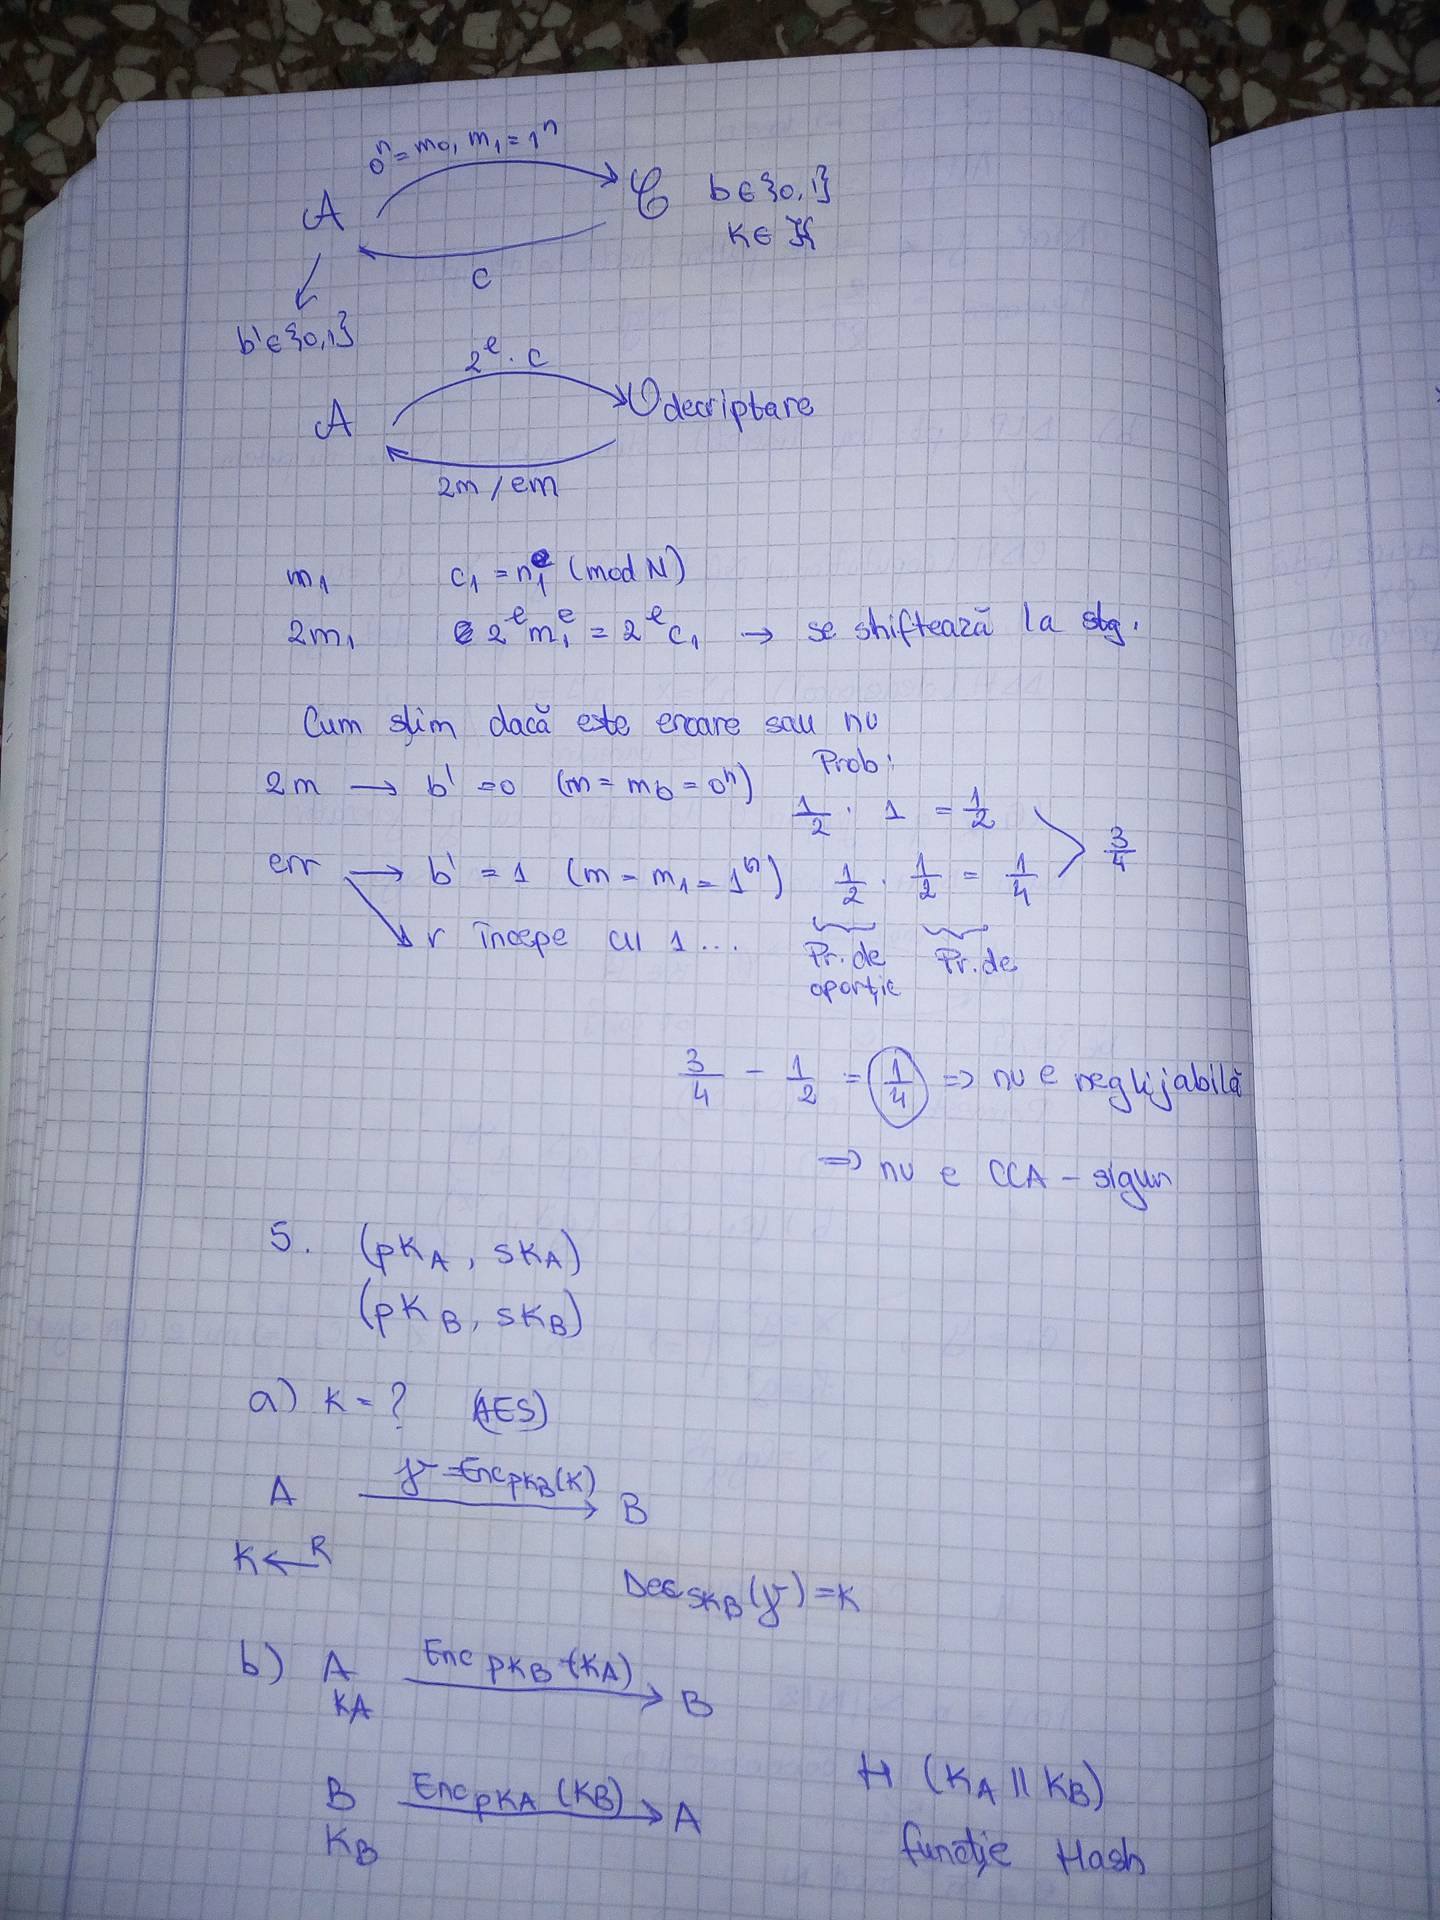 0ⁿ = m₀, m₁ = 1ⁿ
A C b ∈ {0,1}
K ∈ K
c
b' ∈ {0,1}
2ᵉ · c
A O decriptare
2m / em
m₁ c₁ = n₁ᵉ (mod N)
2m₁ 2ᵉ m₁ᵉ = 2ᵉ c₁ → se shiftează la stg.
Cum știm dacă este eroare sau nu
Prob:
2m → b' = 0 (m = m_b = 0ⁿ) 1/2 · 1 = 1/2
3/4
err → b' = 1 (m = m₁ = 1ⁿ) 1/2 · 1/2 = 1/4
r începe cu 1 ...
Pr. de Pr. de
apariție
3/4 - 1/2 = 1/4 => nu e neglijabilă
=> nu e CCA - sigur
5. (pK_A, sK_A)
(pK_B, sK_B)
a) K = ? (AES)
A y = Enc_pK_B(K) B
K ← R
Dec_sK_B(y) = K
b) A Enc_pK_B(K_A) B
K_A
B Enc_pK_A(K_B) A H (K_A || K_B)
K_B funcție Hash